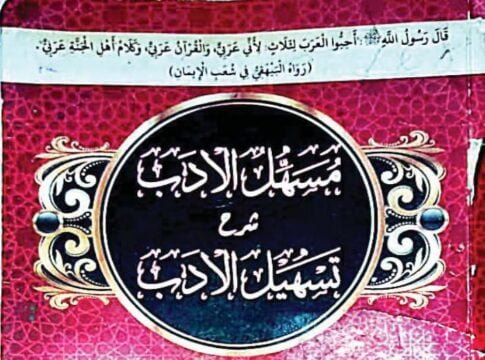 قَالَ رَسُولُ اللَّهِ ﷺ: أَحِبُّوا الْعَرَبَ لِثَلَاثٍ: لِأَنِّي عَرَبِيٌّ، وَالْقُرْآنُ عَرَبِيٌّ، وَكَلَامُ أَهْلِ الْجَنَّةِ عَرَبِيٌّ.
(رَوَاهُ الْبَيْهَقِيُّ فِي شُعَبِ الْإِيمَانِ)
مُسَهِّلُ الْاَدَبْ
شرح
تَسْهِيْلُ الْاَدَبْ